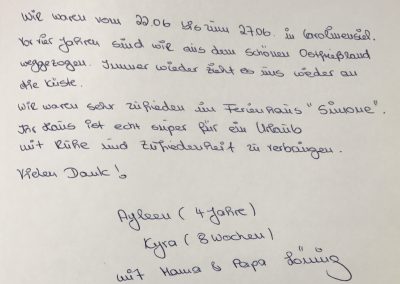 Wir waren vom 22.06 bis zum 27.06. in Carolinensiel.
Vor vier Jahren sind wir aus dem schönen Ostfriesland
weggezogen. Immer wieder zieht es uns wieder an
die Küste.
Wir waren sehr zufrieden im Ferienhaus "Simone".
Ihr Haus ist echt super für ein Urlaub
mit Ruhe und Zufriedenheit zu verbringen.
Vielen Dank!
Ayleen (4 Jahre)
Kyra (8 Wochen)
mit Mama & Papa